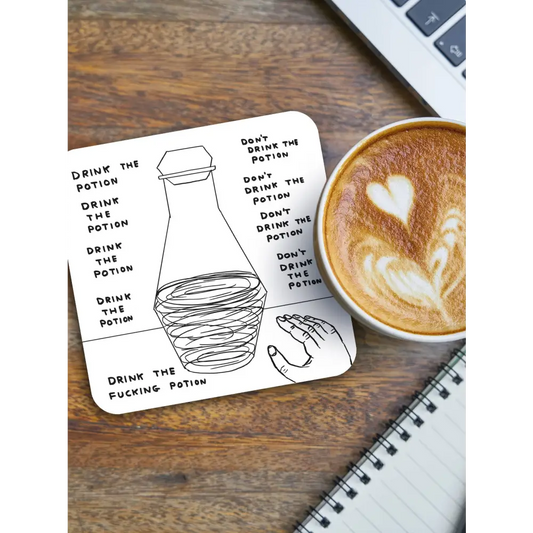 DRINK THE
POTION
DRINK
THE
POTION
DRINK
THE
POTION
DRINK
THE
POTION
DRINK THE
FUCKING POTION
DON'T
DRINK THE
POTION
DON'T
DRINK THE
POTION
DON'T
DRINK THE
POTION
DON'T
DRINK
THE
POTION